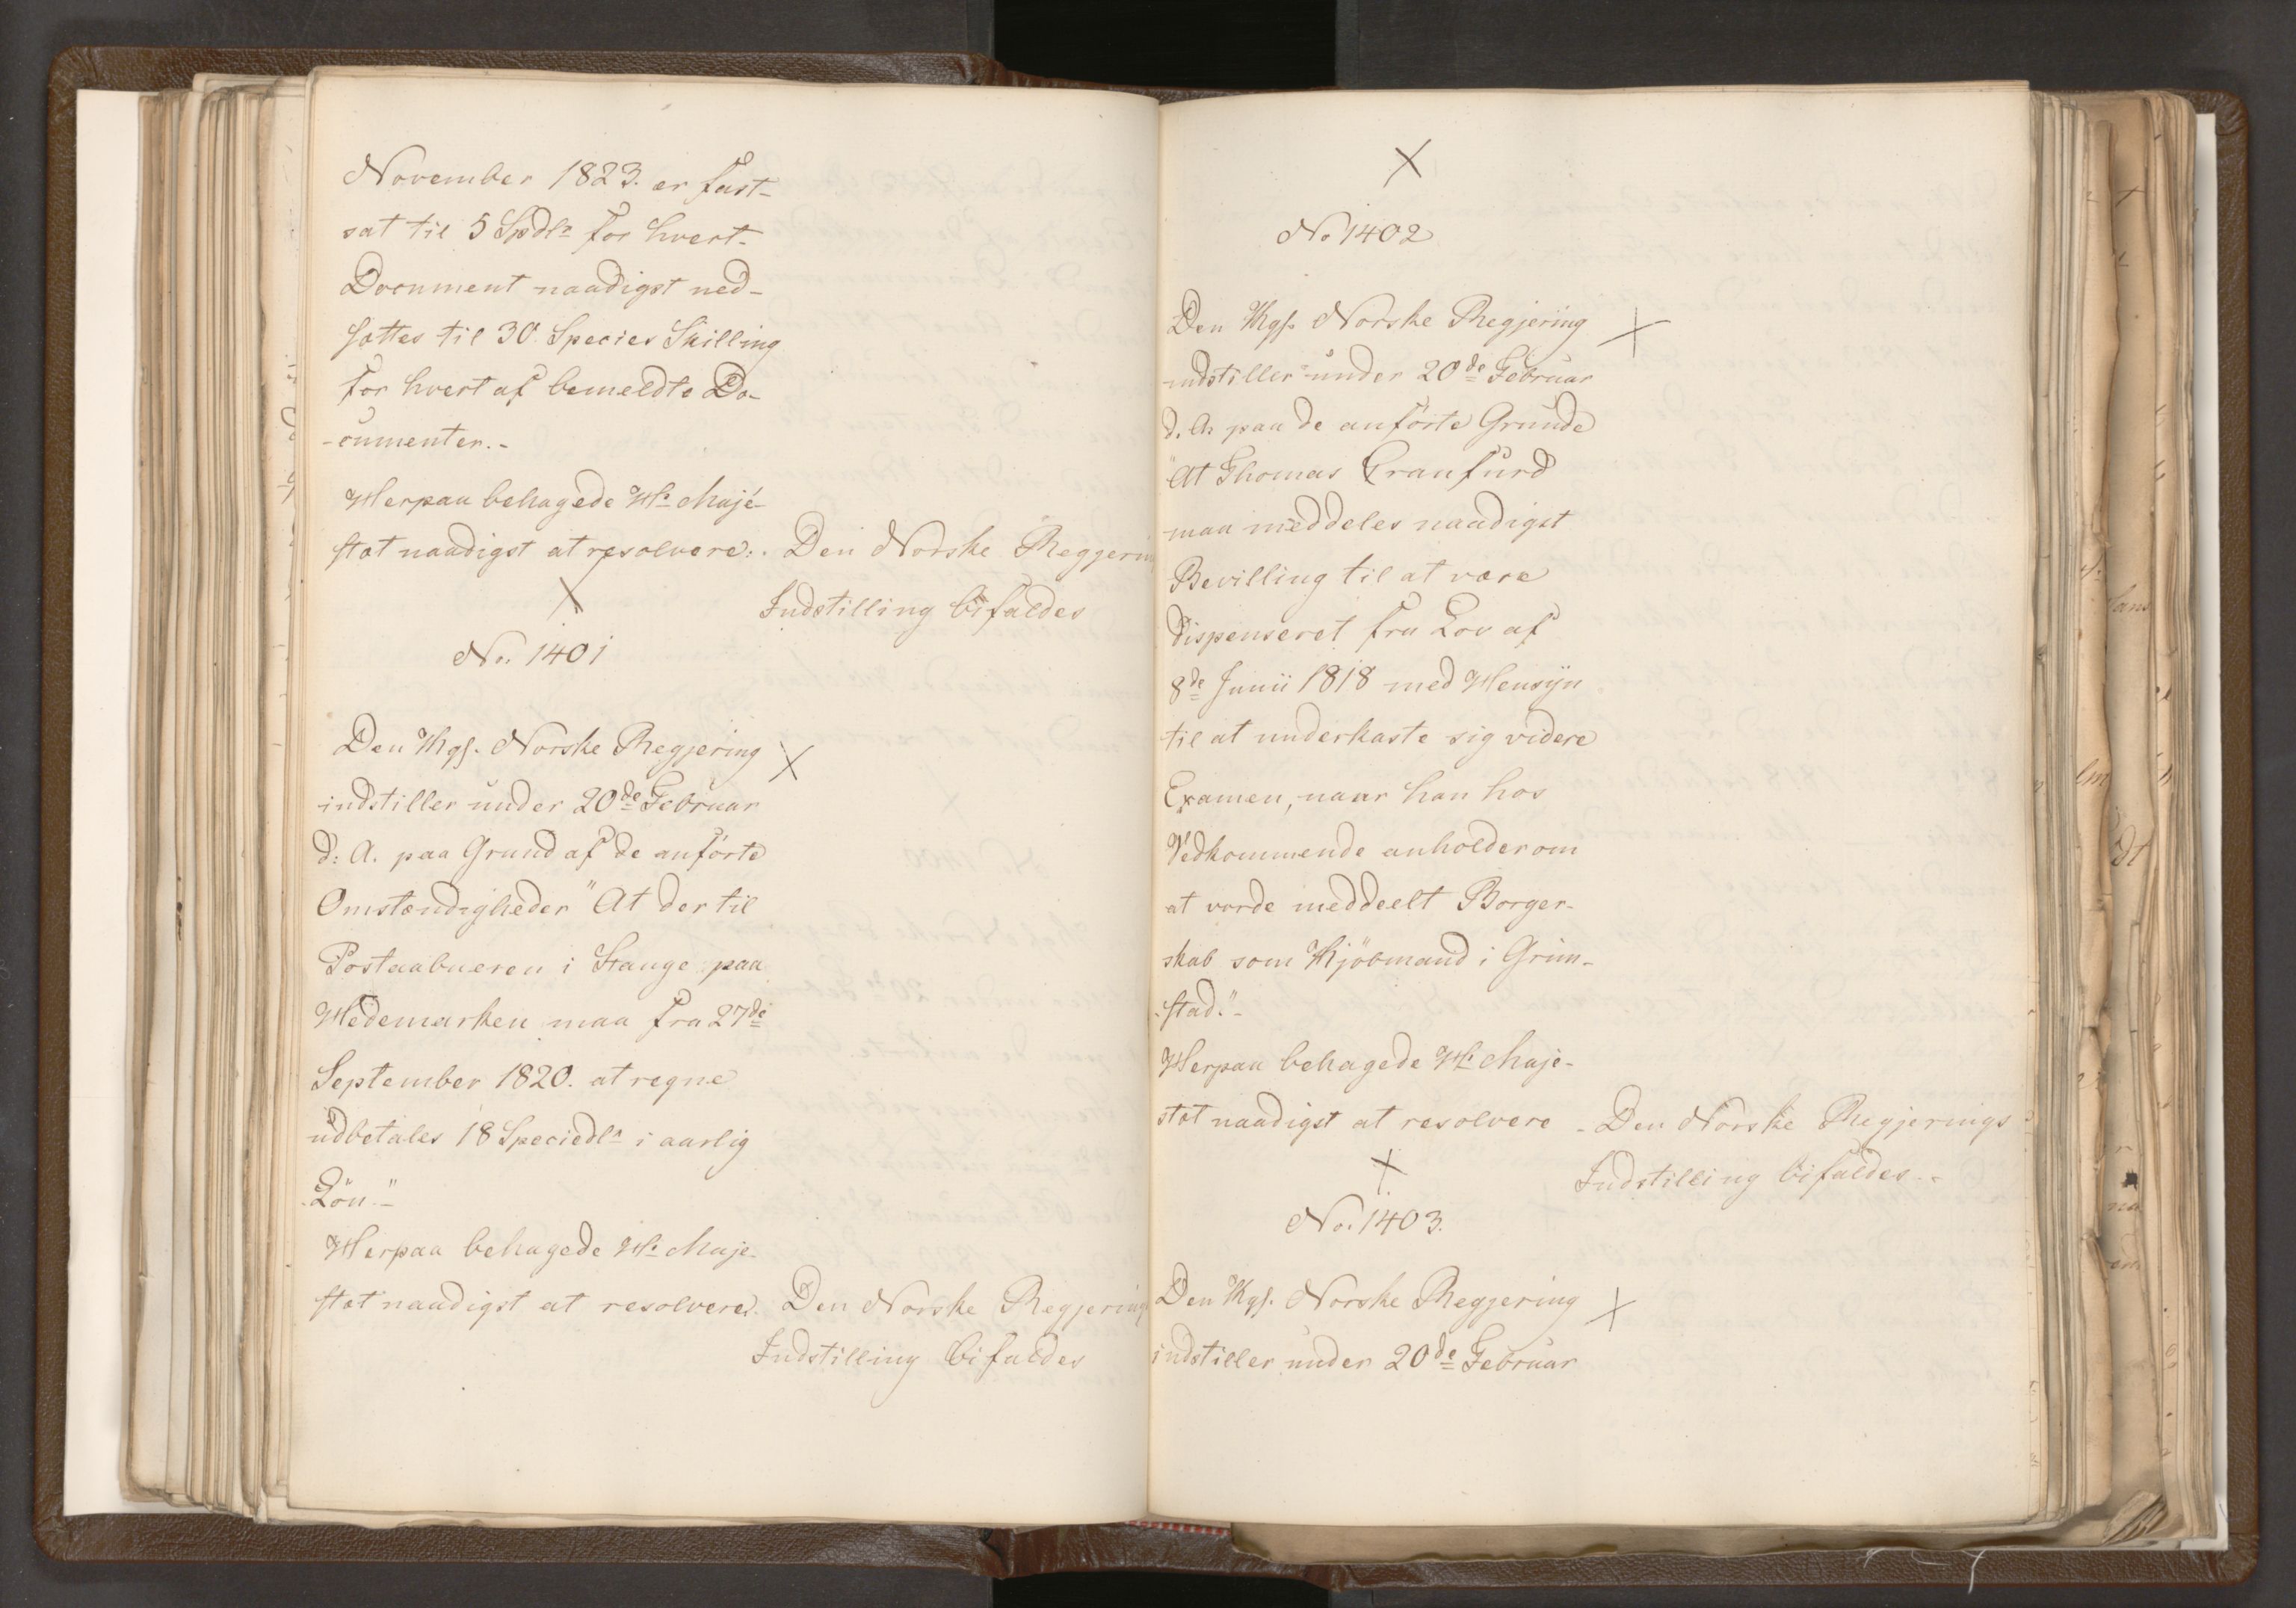 November 1823. er fast-
sat til 5 Spdlr for hvert-
Document naadigst ned-
sættes til 30. Species Skilling
for hvert af bemeldte Do-
-cumenter.-
Herpaa behagede Hs Maje-
stæt naadigst at resolvere:. Den Norske Regjering
Indstilling bifaldes
No. 1401
Den Kgs. Norske Regjering
indstiller under 20de Februar
d: A. paa Grund af de anförte
Omstændigheder "At der til
Postaabneren i Stange paa
Hedemarken maa fra 27de
September 1820. at regne
udbetales 18 Speciedlr i aarlig
Lön."-
Herpaa behagede Hs Maje-
stæt naadigst at resolvere. Den Norske Regjerings
Indstilling bifaldes
No 1402
Den Kgs. Norske Regjering
indstiller under 20de Februar
d. A. paa de anförte Grunde
"At Thomas Cranfurd
maa meddeles naadigst
Bevilling til at være
dispenseret fra Lov af
8de Junii 1818 med Hensyn
til at underkaste sig videre
Examen, naar han hos
Vedkommende anholder om
at vorde meddeelt Borger-
skab som Kjöbmand i Grim-
-stad."-
Herpaa behagede Hs Maje-
stæt naadigst at resolvere - Den Norske Regjerings
Indstilling bifaldes.-
No. 1403.
Den Kgs. Norske Regjering
indstiller under 20de Februar